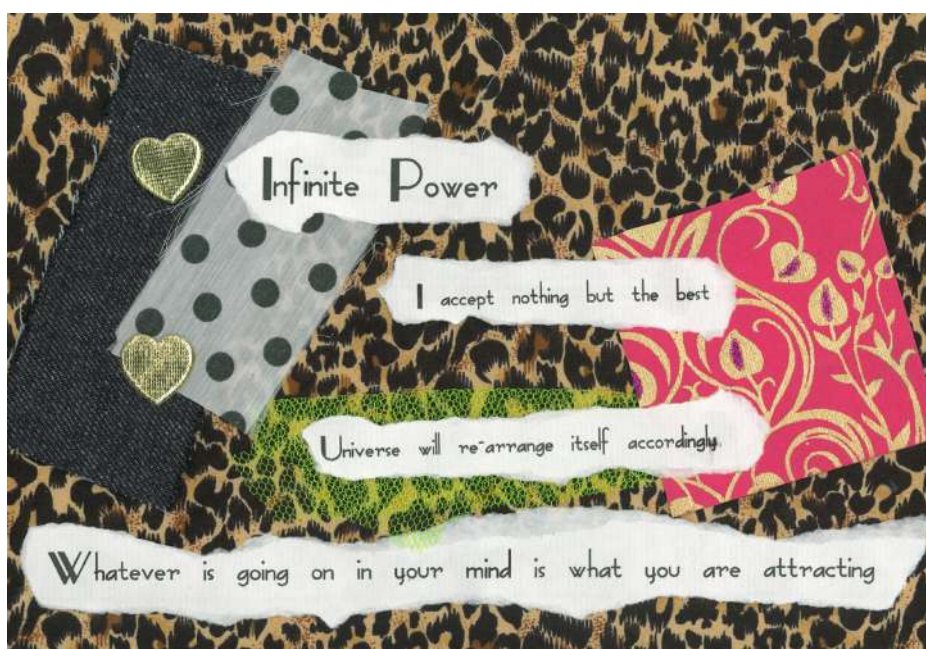 Infinite Power
I accept nothing but the best
Universe will re-arrange itself accordingly.
Whatever is going on in your mind is what you are attracting